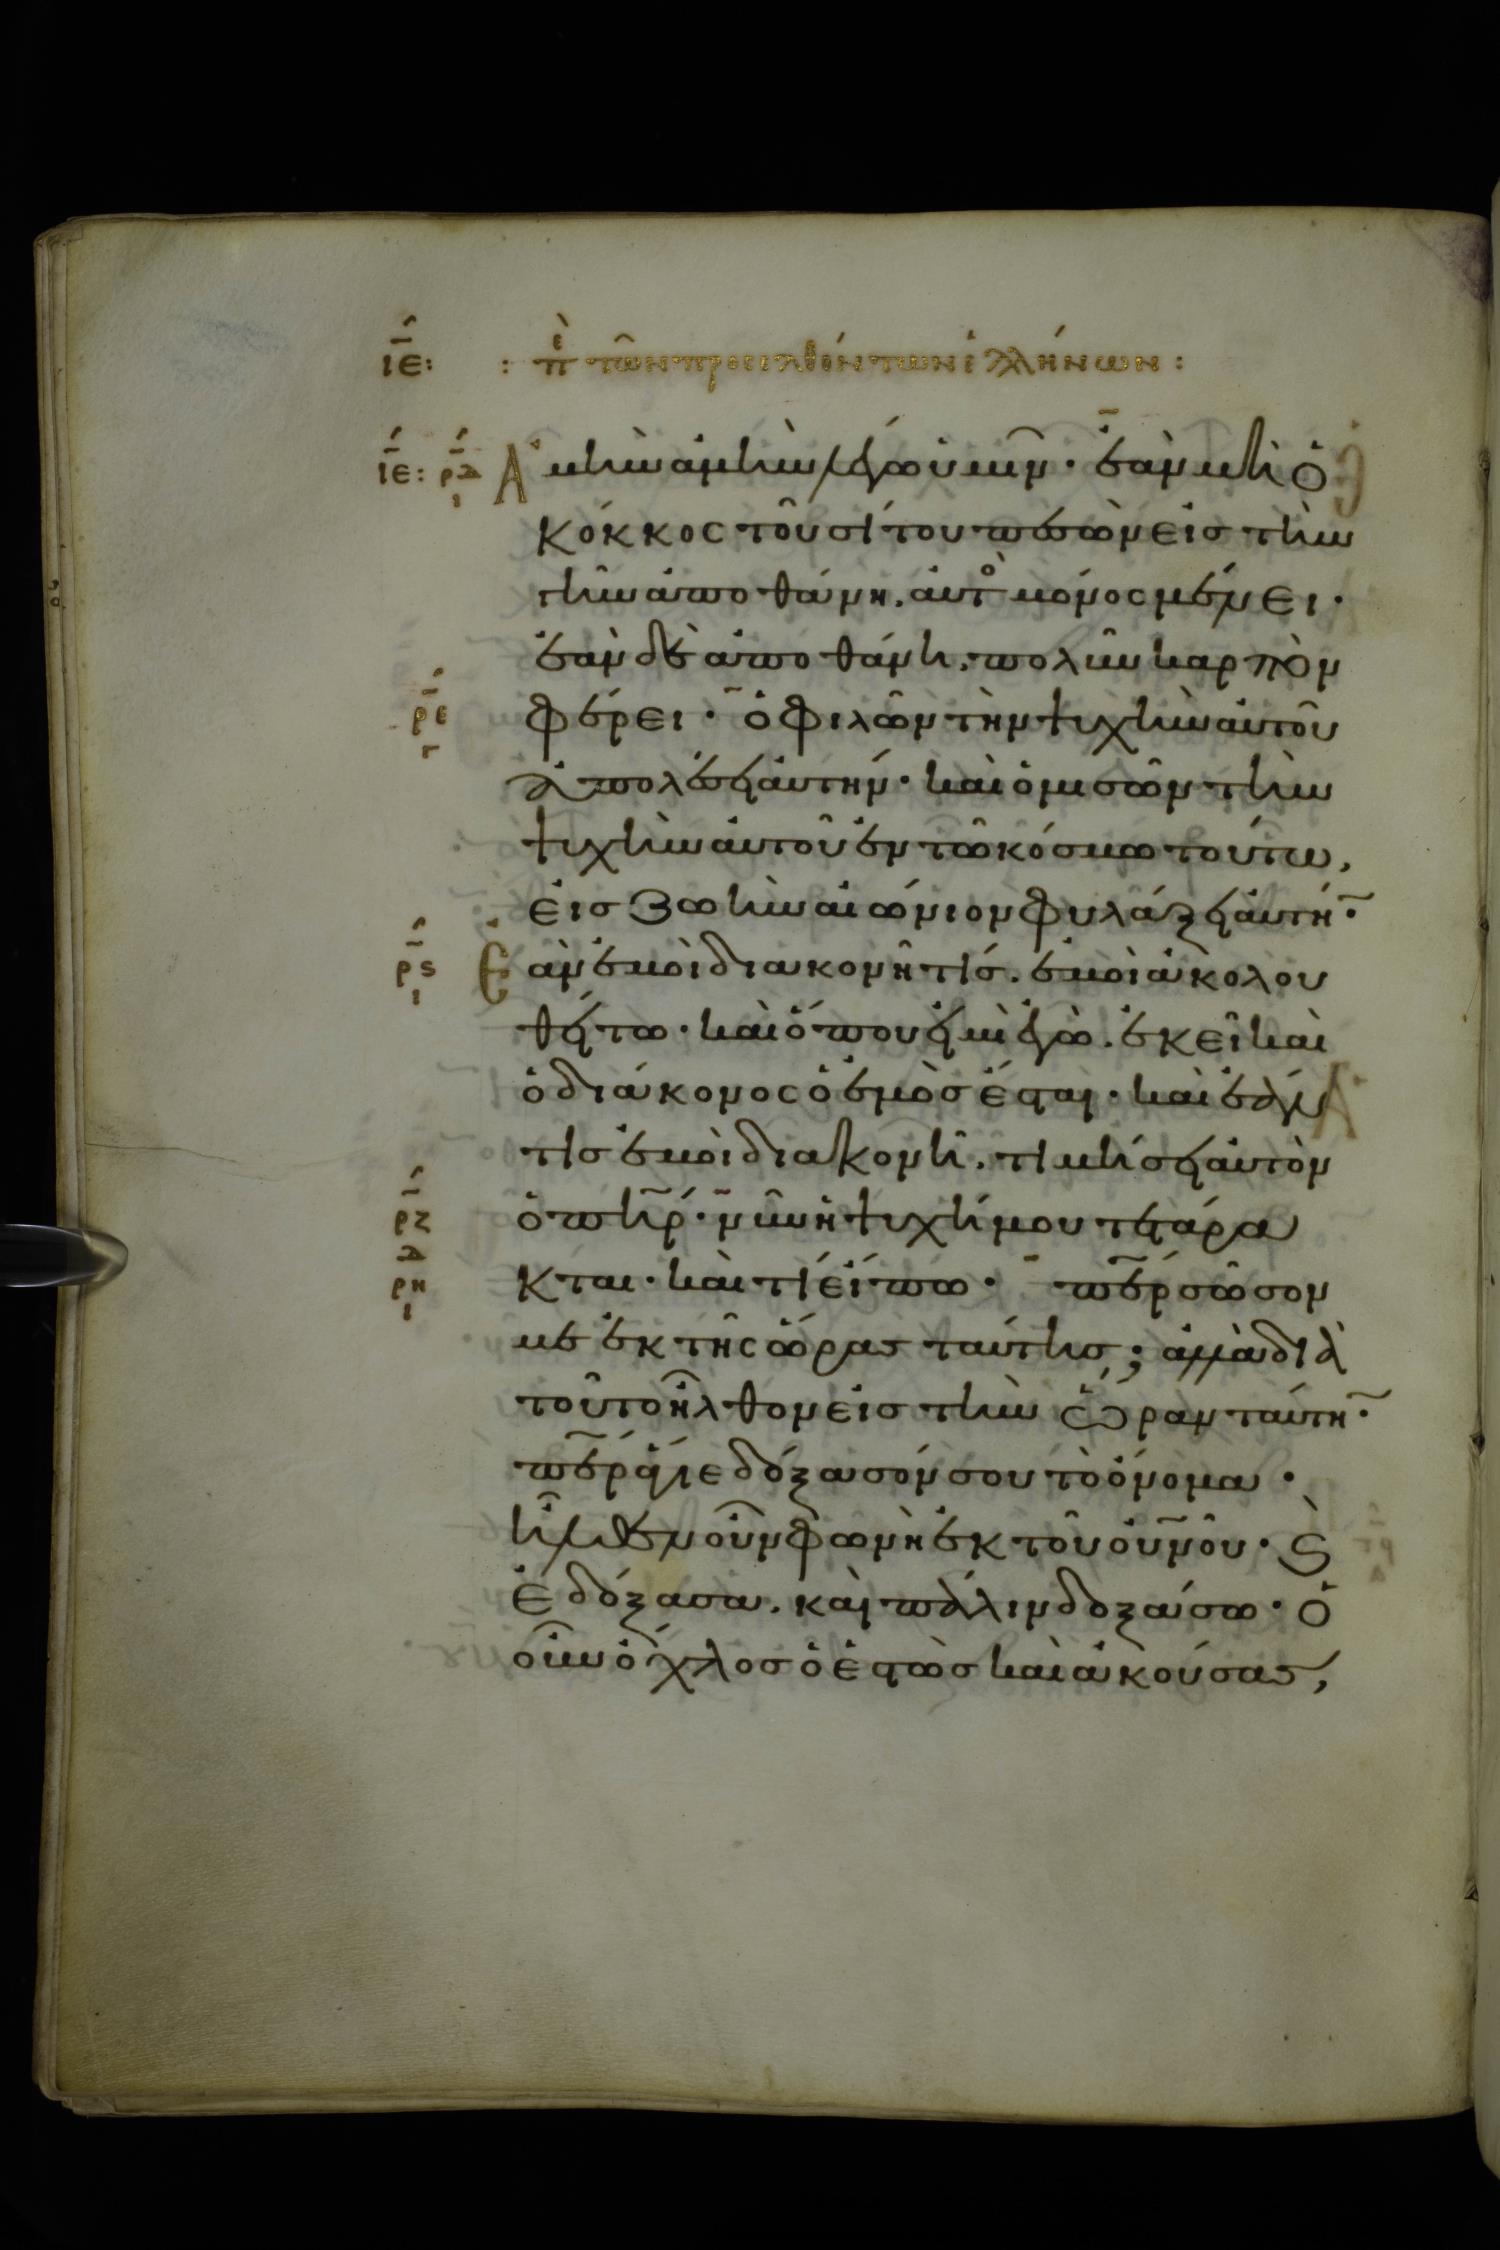 ιε: : πε τῶν προσελθόντων ἑλλήνων:
ιε: ρδ Ἀμὴν ἀμὴν λέγω ὑμῖν· ἐὰν μὴ ὁ
ι
κόκκος τοῦ σίτου πεσὼν εἰς τὴν
γῆν ἀποθάνη, αὐτὸ μόνος μένει·
ἐὰν δὲ ἀποθάνη, πολὺν καρπὸν
ρε φέρει· ὁ φιλῶν τὴν ψυχὴν αὐτοῦ
γ
ἀπολέσει αὐτήν· καὶ ὁ μισῶν τὴν
ψυχὴν αὐτοῦ ἐν τῶ κόσμω τούτω,
εἰς ζωὴν αἰώνιον φυλάξει αὐτη̄·
ρϛ Ἐὰν ἐμοὶ διακονῆ τίς. ἐμοὶ ἀκολου
ι
θείτω· καὶ ὅπου εἰμὶ ἐγὼ. ἐκεῖ καὶ
ὁ διάκονος ὁ ἐμὸς ἔσται· καὶ ἐάν
τις ἐμοὶ διακονῆ. τιμήσει αὐτὸν
ρζ ὁ πη̄ρ· νῦν ἡ ψυχή μου τετάρα
δ
ρη κται· καὶ τί εἴπω· πε̄ρ σῶσον
ι
με ἐκ τῆς ὥρας ταύτης; ἀλλὰ διὰ
τοῦτο ἦλθον εἰς τὴν ὥραν ταύτη̄·
πε̄ρ ἅγιε δόξασόν σου τὸ ὄνομα·
ἦλθεν οὖν φωνὴ ἐκ τοῦ οὐ̄νοῦ· ϗ
ἐδόξασα. καὶ πάλιν δοξάσω· ὁ
οὖν ὄχλος ὁ ἑστὼς καὶ ἀκούσας,